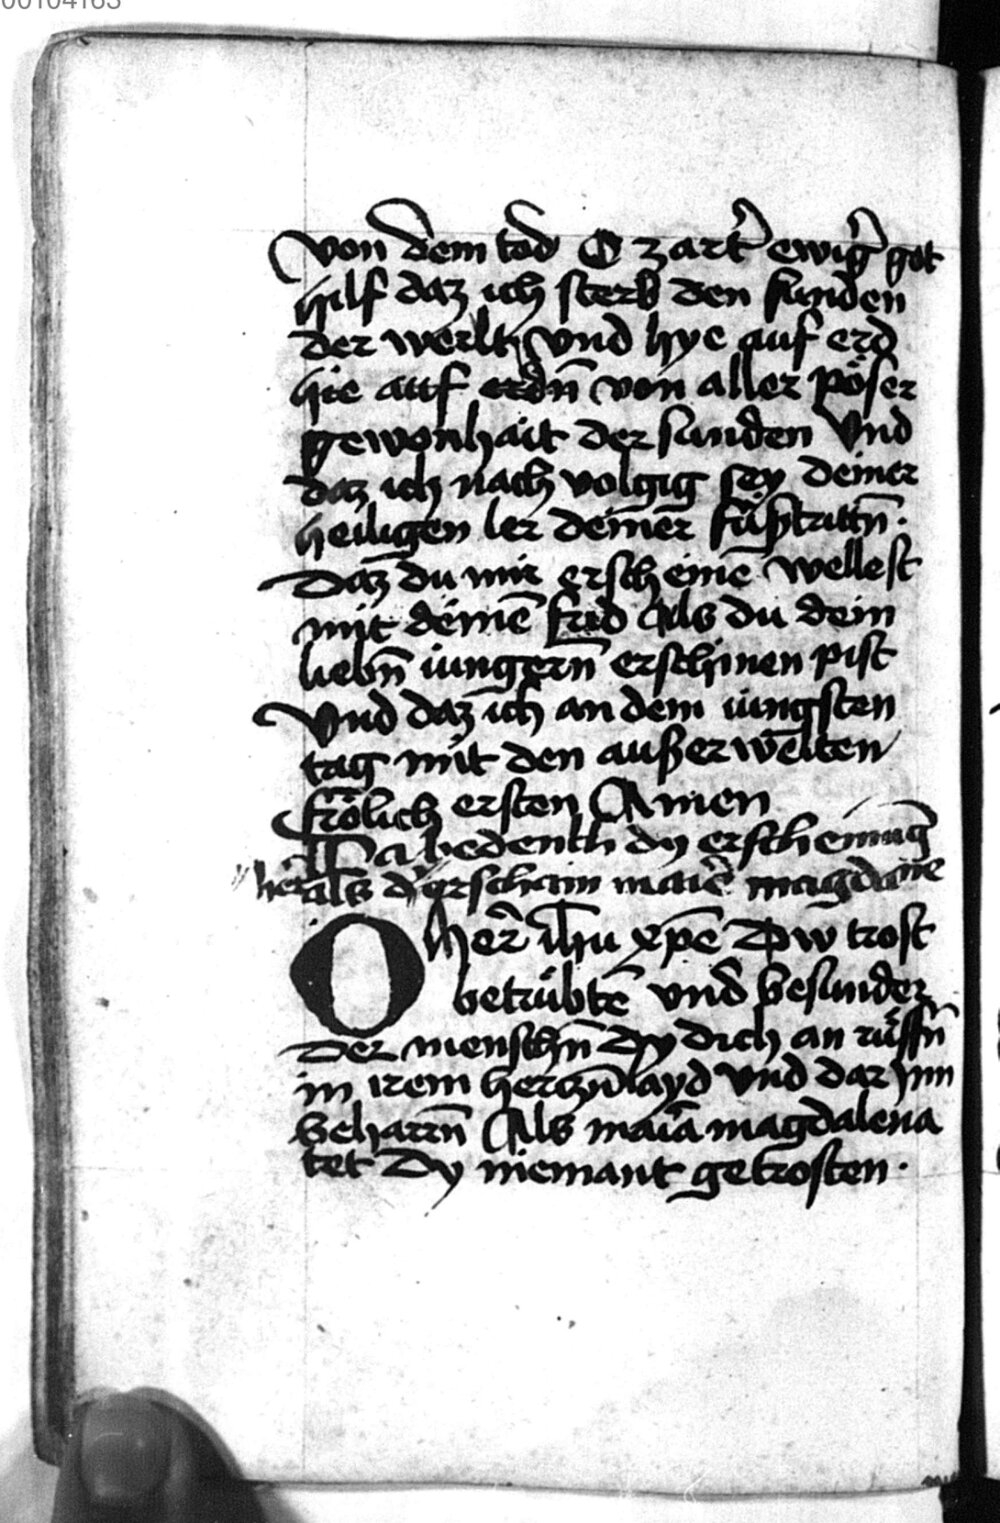 00104163
von dem tod O zartˀ ewigˀ got
hilf daz ich sterb den sunden
der werlt vnd hye auf erd
hie auf erdn̄ von aller pöser
gewonhait der sunden Vnd
daz ich nach volgig sey deiner
heiligen ler deinēr fuͤßtrittn̄.
Daz du mir erscheinē wellest
mit deinē frid Als du dein
liebn̄ iungern̄ erschinen pist
Vnd daz ich an dem iungsten
tag mit den außerwelten
frölich ersten Amen
bedenckh dy erscheinūg
als erschain marē magdalene
O Herˀ ih̄u xp̄e Dw trost
betrübtē vnd besunder
Der menschn̄ Dy dich an ruͤffn̄
in irem herczn̄layd Vnd dar jnn
beharrn̄ Als maīa magdalena
tet Dy niemant getrosten.